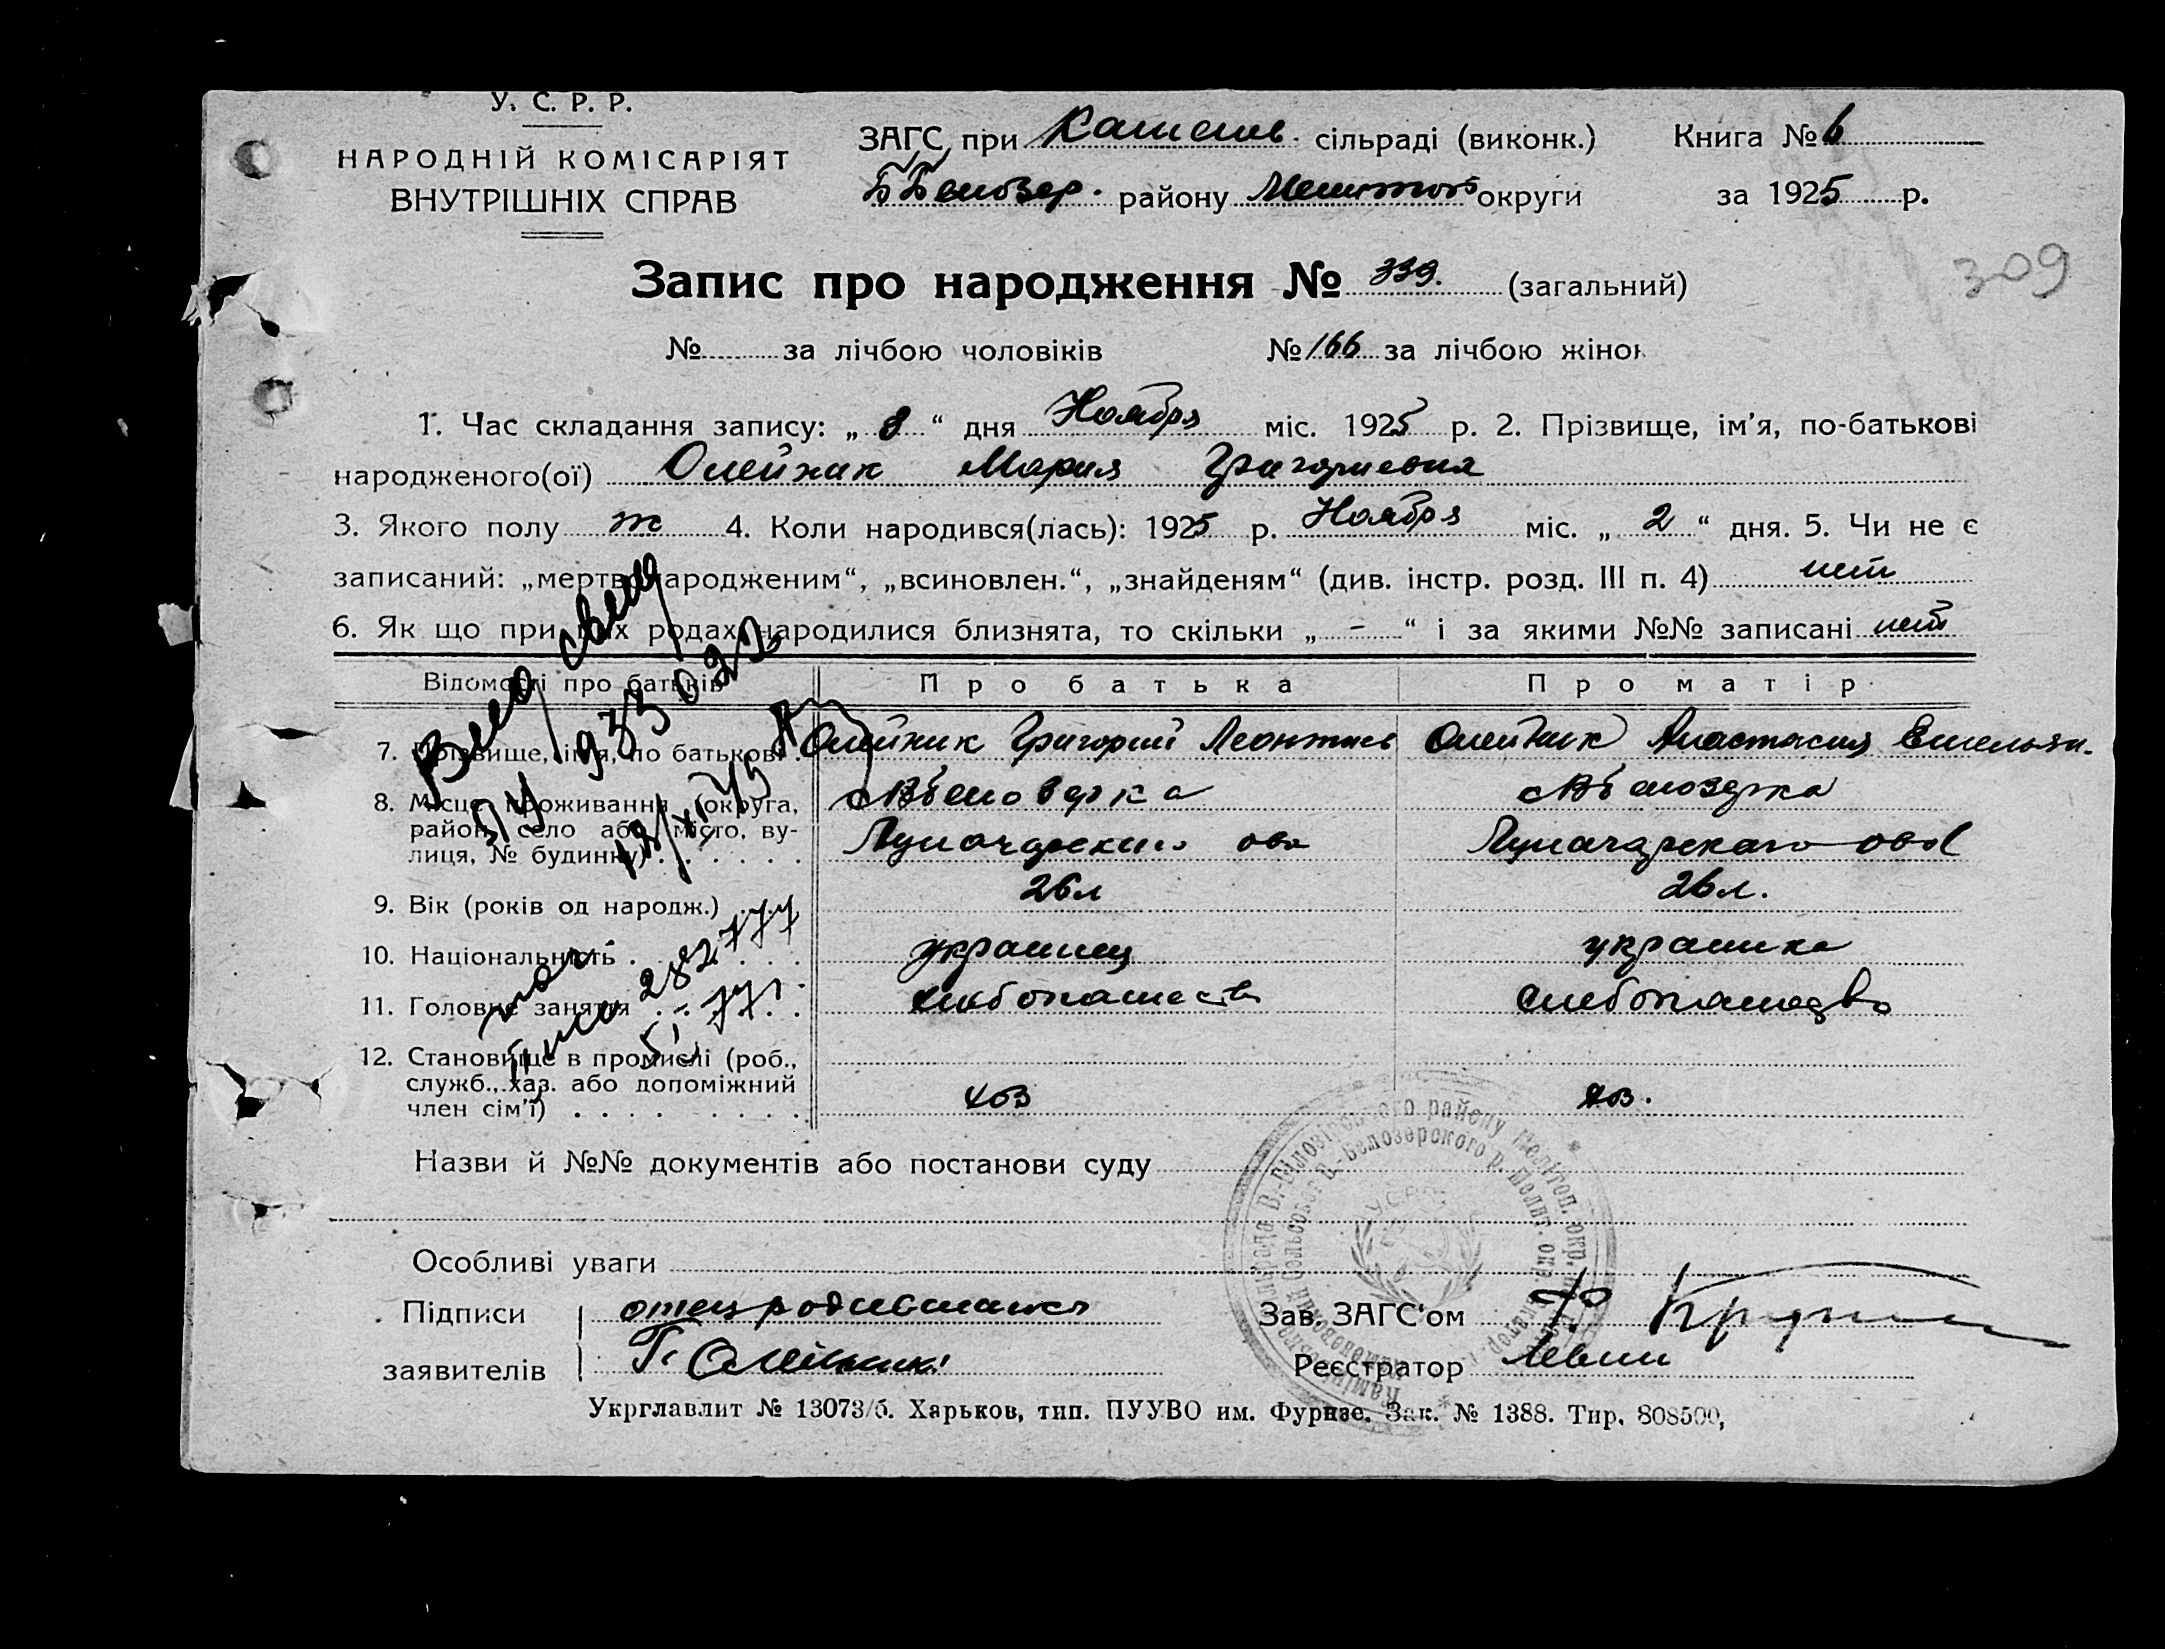 У. С. Р. Р.
НАРОДНІЙ КОМІСАРІЯТ
ВНУТРІШНІХ СПРАВ
ЗАГС при сільраді (виконк.)
району округи
Книга № 6
за 1925 р.
309
Запис про народження № 339. (загальний)
№ за лічбою чоловіків № 166 за лічбою жінок
1. Час складання запису: „ 8 “ дня Ноября міс. 1925 р. 2. Прізвище, ім’я, по-батькові
народженого(ої) Олейник Мария Григориевна
3. Якого полу ж 4. Коли народився(лась): 1925 р. Ноября міс. „ 2 “ дня. 5. Чи не є
записаний: „мертвонародженим“, „всиновлен.“, „знайденям“ (див. інстр. розд. III п. 4) нет
6. Як що при цих родах народилися близнята, то скільки „ - “ і за якими №№ записані нет
Відомості про батьків Про батька Про матір
7. Прізвище, ім’я, по батькові . Олейник Григорий Леонтиев Олейник Анастасия Емельян.
8. Місце проживання (округа,
район, село або місто, ву-
лиця, № будинку) . . . . . .
Белозерка Белозерка
Луначарского ова Луначарского ова
9. Вік (років од народж.) . . . 26л 26л.
10. Національність . . . . украинец украинка
11. Головне заняття . . . . . хлебопашество хлебопашество
12. Становище в промислі (роб.,
служб., хаз. або допоміжний
член сім’ї) . . . . . . . . хоз хоз.
Назви й №№ документів або постанови суду
Особливі уваги
Підписи отец родившаяся
заявителів Г. Олейник
Зав. ЗАГС’ом
Реєстратор
Укрглавлит № 13073/б. Харьков, тип. ПУУВО им. Фрунзе. Зак. № 1388. Тир. 808500,